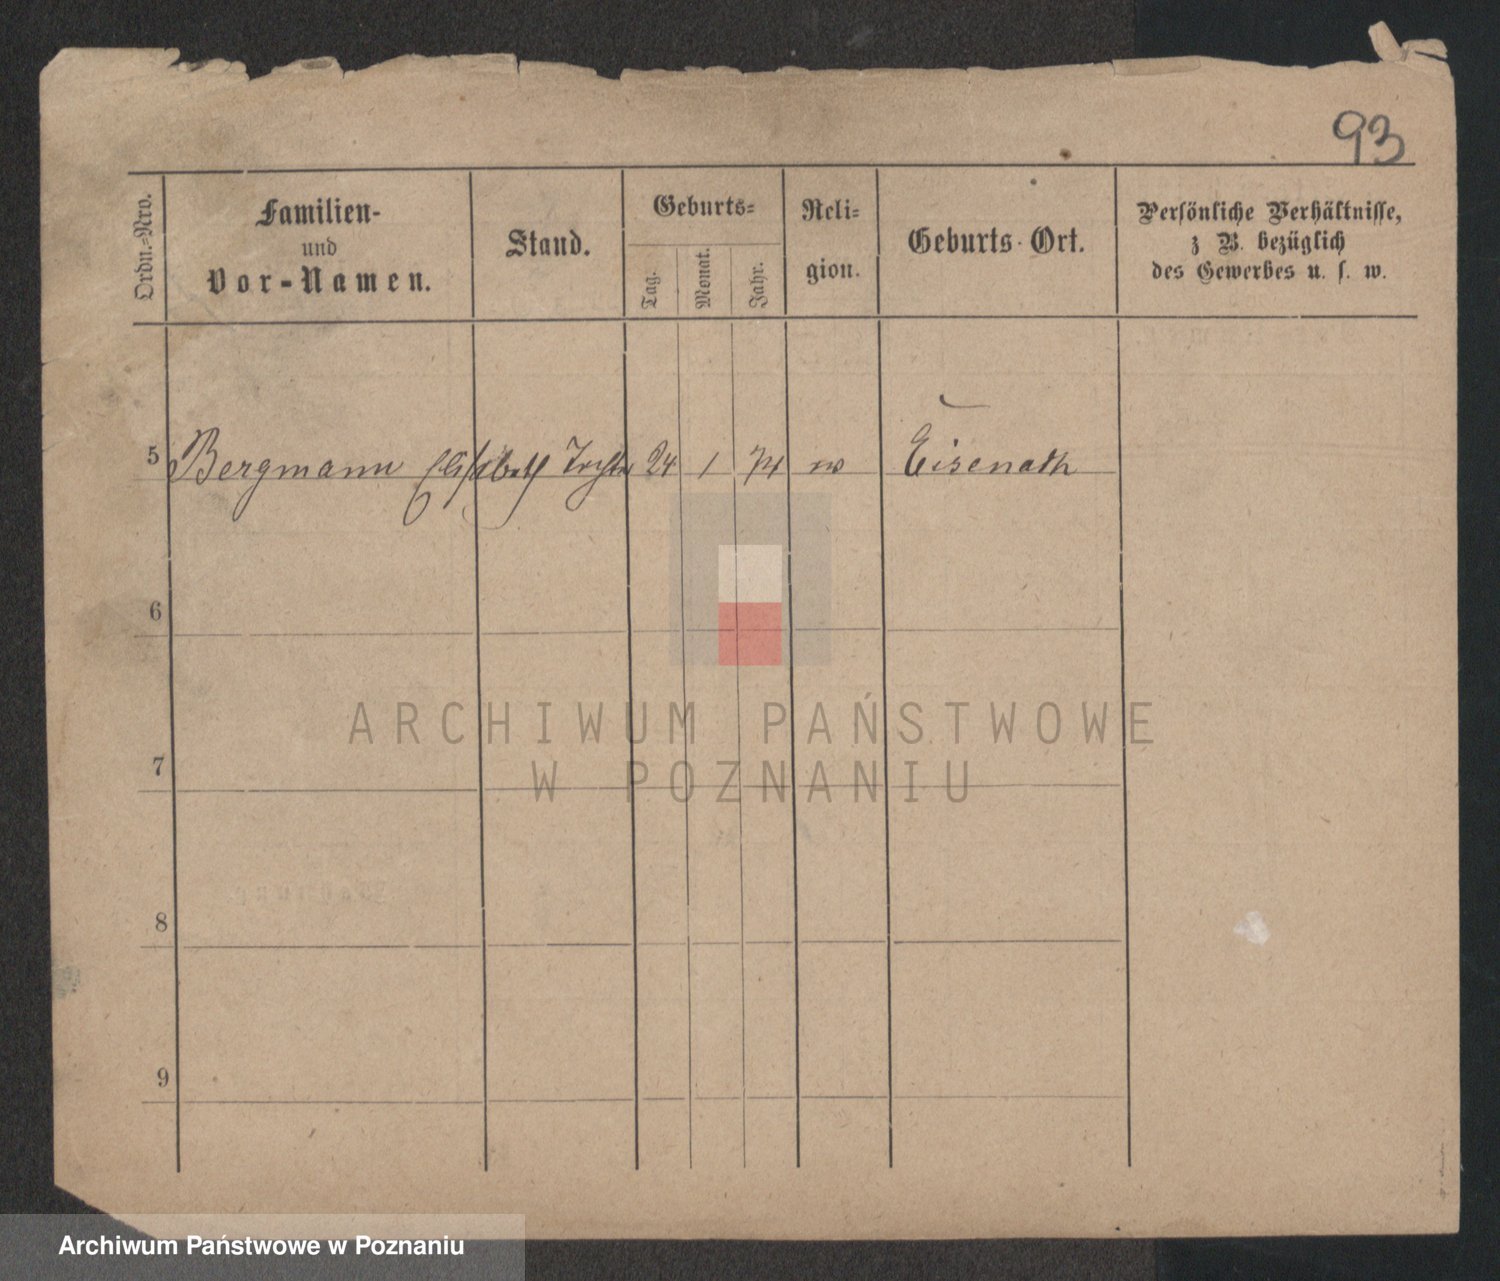 93
Ordn.-Nro.
Familien-
und
Vor-Namen.
Stand.
Geburts-
Tag.
Monat.
Jahr.
Reli-
gion.
Geburts-Ort.
Persönliche Verhältnisse,
z B. bezüglich
des Gewerbes u. s. w.
5 Bergmann Elisabeth Tochter 24 1 74 Eisenath
6
7
8
9
ARCHIWUM PAŃSTWOWE
W POZNANIU
Archiwum Państwowe w Poznaniu